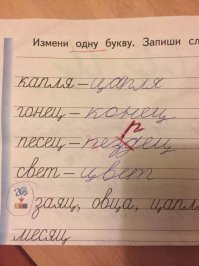 Измени одну букву. Запиши сл
капля – цапля
гонец – конец
песец – пездец
р
свет – цвет
заяц, овца, цапл
месяц